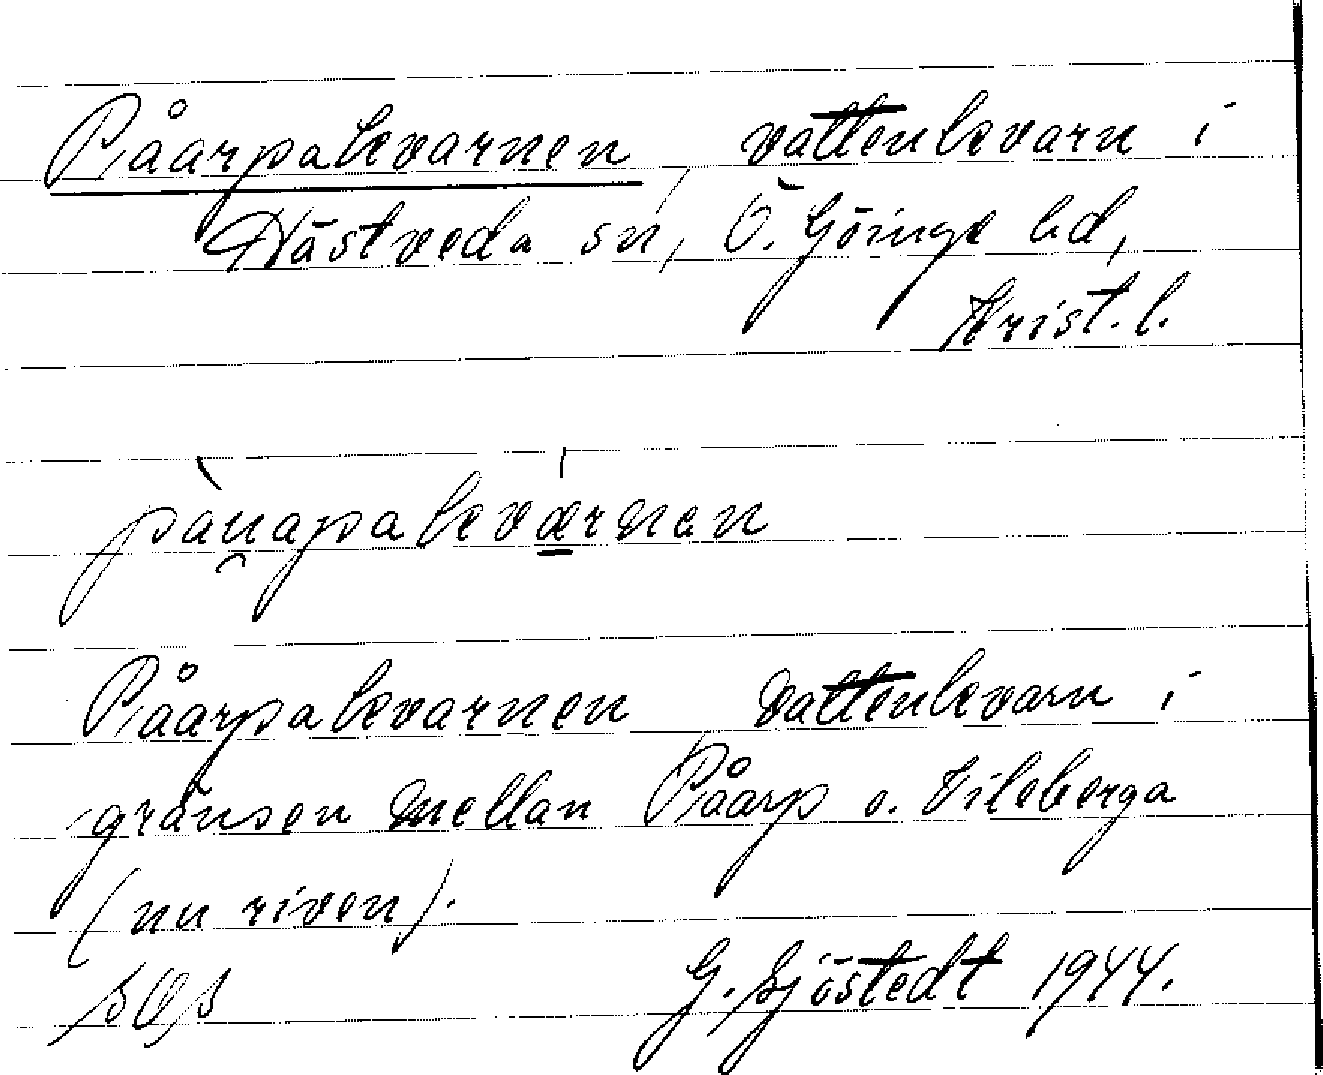 Påarpakvarnen, vattenkvarn i
Hästveda sn, Ö. Göinge hd,
Krist. l.
Påarpakvarnen, vattenkvarn i
gränsen mellan Påarp o. Vileberga
(nu riven).
G. Sjöstedt 1944.